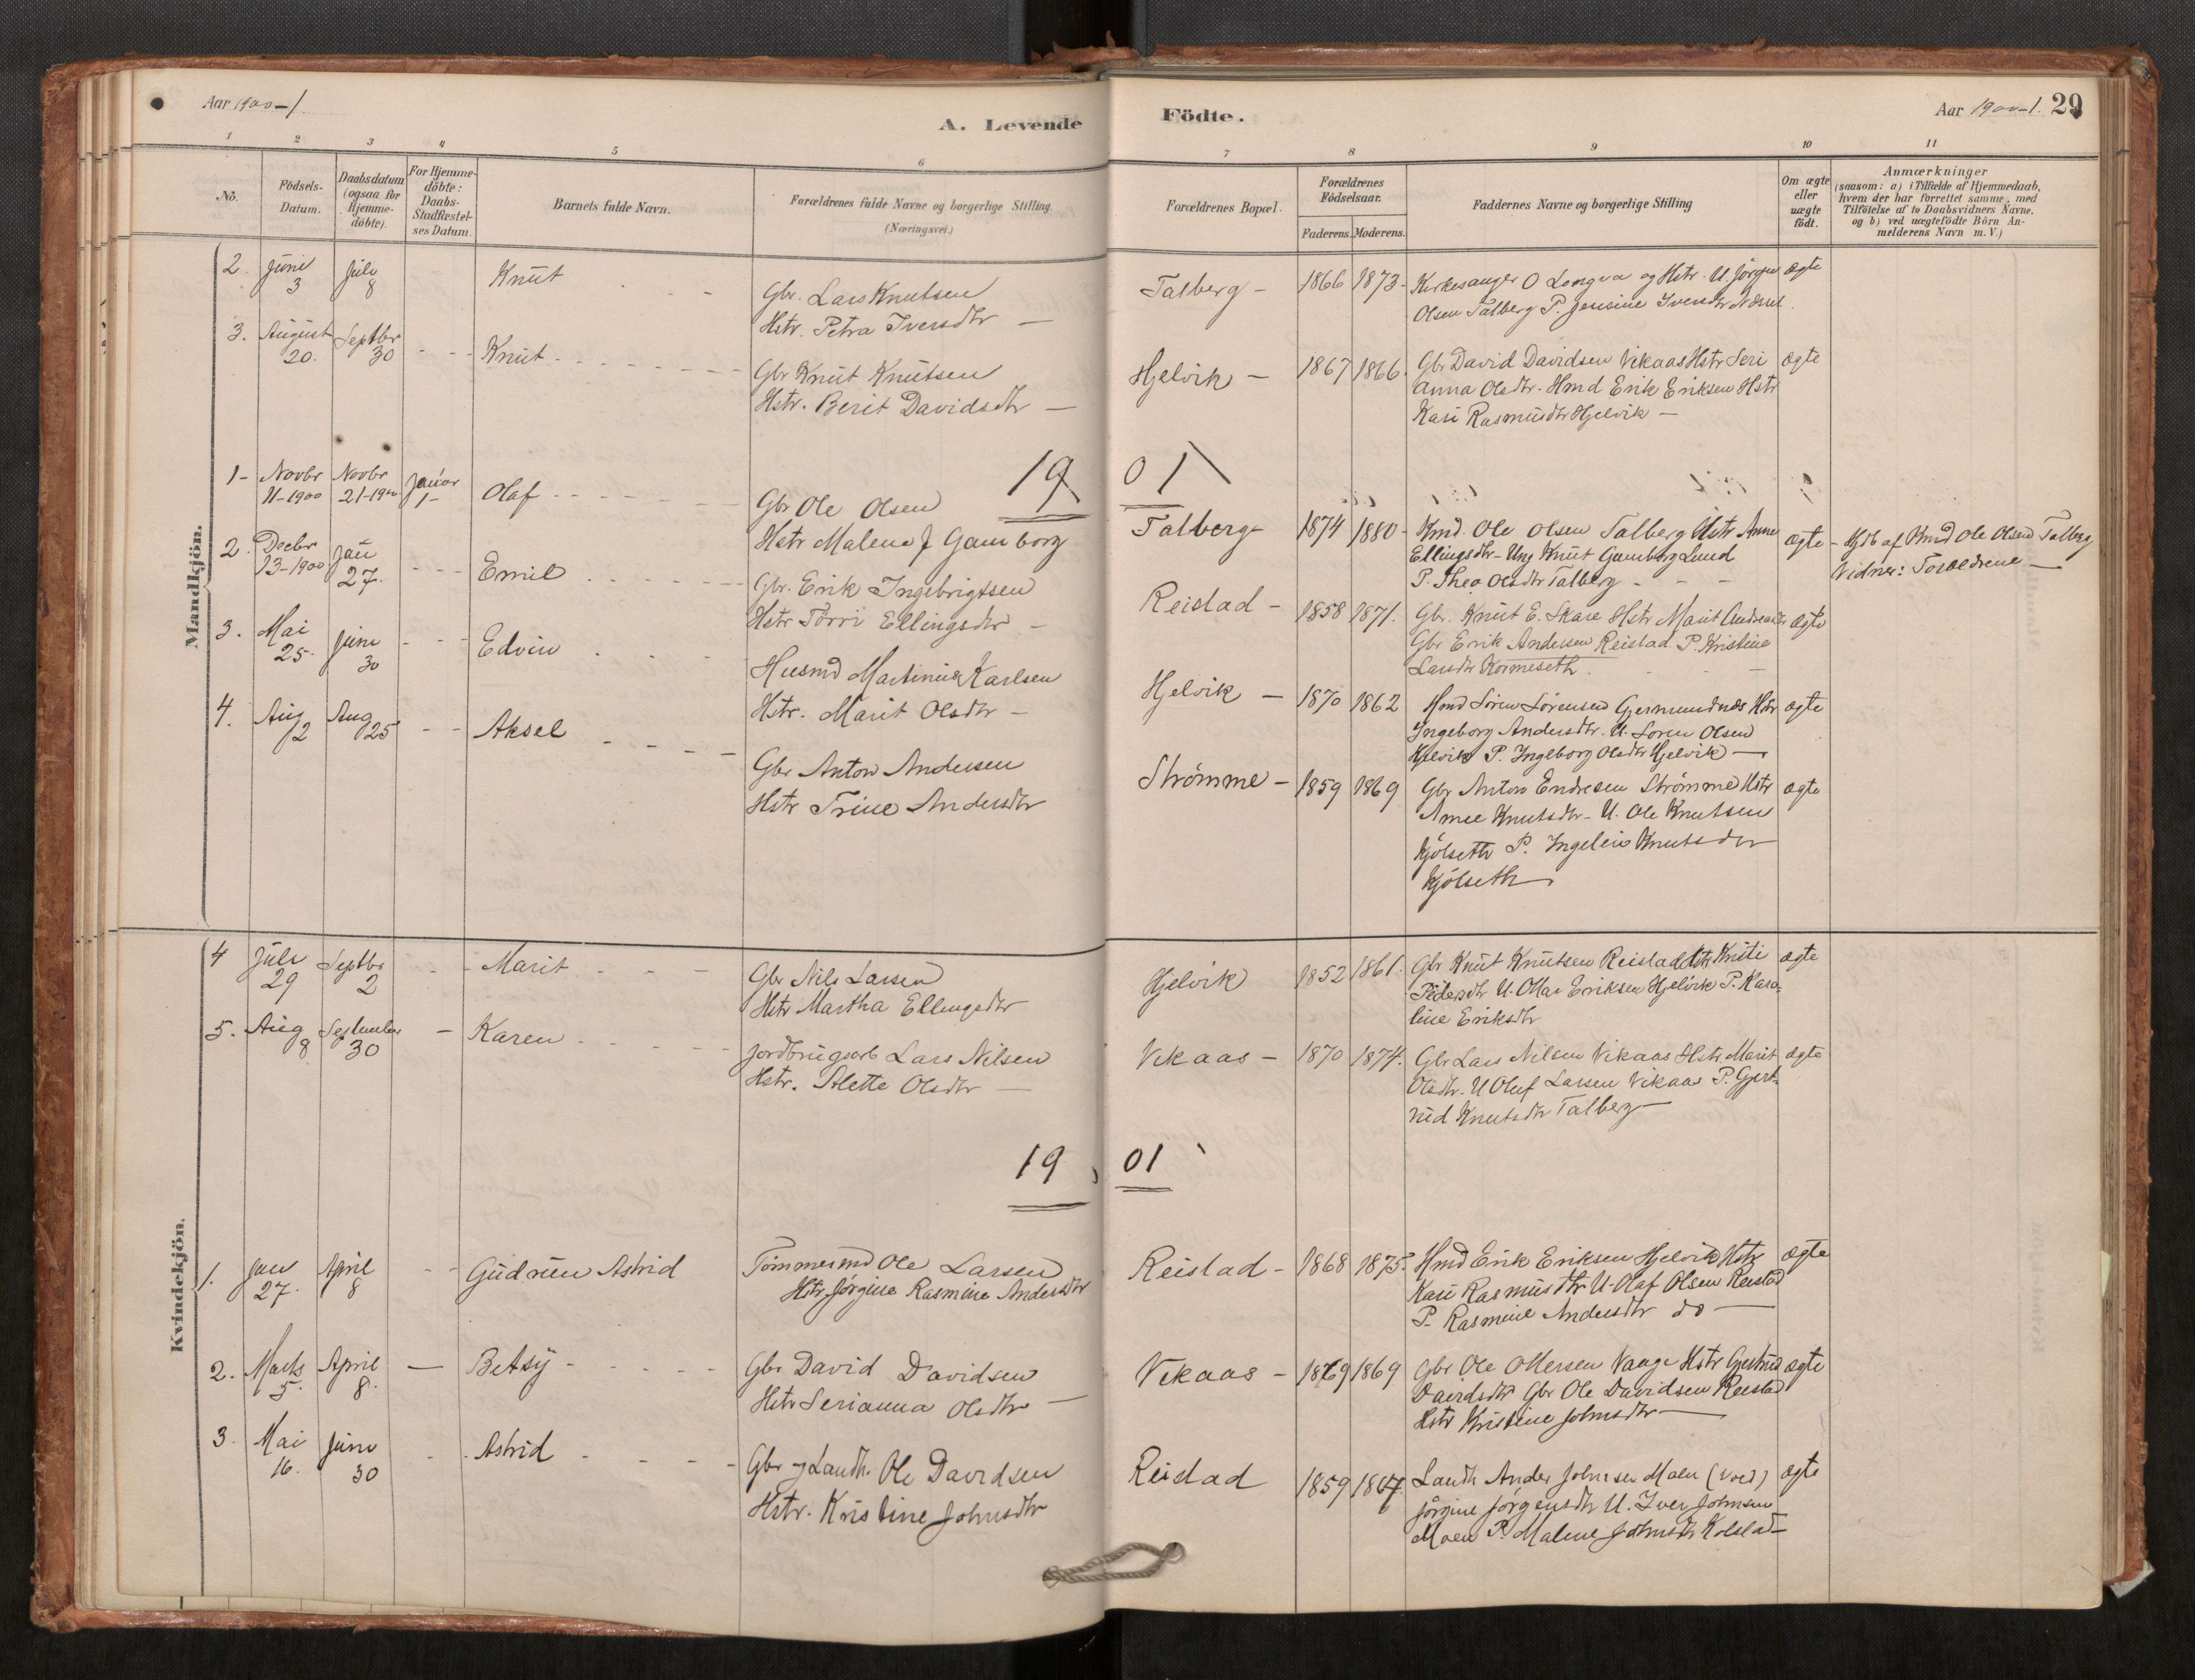 Aar 1900-1
A. Levende
Födte.
Aar 1900-1. 29
1 2 3 4 5 6 7 8 9 10 11
No.
Födsels-Datum.
Daabsdatum (ogsaa for Hjemme-döbte).
For Hjemme-döbte: Daabs-Stadfæstel-ses Datum.
Barnets fulde Navn.
Forældrenes fulde Navne og borgerlige Stilling. (Næringsvei.)
Forældrenes Bopæl.
Forældrenes Födselsaar.
Faderens. Moderens.
Faddernes Navne og borgerlige Stilling
Om ægte eller uægte födt.
Anmærkninger
(saasom: a) i Tilfælde af Hjemmedaab,
hvem der har forrettet samme, med
Tilföielse af to Daabsvidners Navne,
og b) ved uægtefödte Börn An-
melderens Navn m. V.)
Mandkjön.
2. Juni 3 Juli 8 Knut
Gbr. Lars Knutsen
Hstr. Petra Iversdtr
Talberg 1866 1873
Kirkesanger O Longva og Hstr. U Jörgen
Olsen Talberg P. Jensine Iversdtr
ægte
3. August 20. Septbr 30 Knut
Gbr Knut Knutsen
Hstr. Berit Davidsdtr
Hjelvik 1867 1866.
Gbr David Davidsen Vikaas Hstr Seri
Anna Olsdtr. Hmd Erik Eriksen Hstr
Kari Rasmusdtr Hjelvik
ægte
1901
1- Novbr 11-1900 Novbr 21-1900 Januar 1- Olaf
Gbr Ole Olsen
Hstr Malena J Gamborg
Talberg 1874 1880
Kmd. Ole Olsen Talberg Hstr Anne
Ellingsdtr- Ung Knut Gamborg Lund
P. Thea Olsdtr Talberg
ægte
Hjdb af Kmd Ole Olsen Talberg
Vidner: Forældrene
2. Decbr 13-1900 Jan 27. Emil
Gbr. Erik Ingebrigtsen
Hstr Torri Ellingsdtr
Reistad 1858 1871.
Gbr. Knut E. Skare Hstr Marit Andreasdtr
Gbr Erik Andersen Reistad P. Kristine
Larsdtr Kormeseth.
ægte
3. Mai 25. Juni 30 Edvin
Husmd Martinus Karlsen
Hstr. Marit Olsdtr
Hjelvik 1870 1862
Hmd Sören Sörensen Gjermundnes Hstr
Ingeborg Andersdtr. U. Soren Olsen
Hjelvik P. Ingeborg Olsdtr Hjelvik
ægte
4. Aug 2 Aug 25 Aksel
Gbr Anton Andersen
Hstr Trine Andersdtr
Strömme 1859 1869
Gbr Anton Endresen Strömme Hstr
Anne Knutsdtr- U. Ole Knutsen
Kjölseth P. Ingeleiv Knutsdtr
Kjölseth
ægte
Kvindekjön.
4 Juli 29 Septbr 2 Marit
Gbr Nils Larsen
Hstr Martha Ellingsdtr
Hjelvik 1852 1861.
Gbr Knut Knutsen Reistad Hstr Kristi
Pedersdtr U. Ottar Eriksen Hjelvik P. Karo-
line Eriksdtr
ægte
5. Aug 8 September 30 Karen
Jordbrugsarb Lars Nilsen
Hstr. Alette Olsdtr
Vikaas 1870 1874.
Gbr Lars Nilsen Vikaas Hstr Marit
Olsdtr. U Oluf Larsen Vikaas P. Gjert-
rud Knutsdtr Talberg
ægte
1901
1. Jan 27. April 8 Gudrun Astrid
Tömmermd Ole Larsen
Hstr Jörgine Rasmine Andersdtr
Reistad 1868 1875.
Hmd Erik Eriksen Hjelvik Hstr
Kari Rasmusdtr U. Olaf Olsen Reistad
P. Rasmine Andersdtr do
ægte
2. Marts 5. April 8. Betsy
Gbr David Davidsen
Hstr Serianna Olsdtr
Vikaas 1869 1869
Gbr Ole Ottersen Vaage Hstr Gjertrud
Davidsdtr Gbr Ole Davidsen Reistad
Hstr Kristine Johnsdtr
ægte
3. Mai 16. Juni 30 Astrid
Gbr og Landh. Ole Davidsen
Hstr. Kristine Johnsdtr
Reistad 1859 1867
Landh Ander Johnsen Moen (Vold)
Jörgine Jörgensdtr U. Iver Johnsen
Moen P. Malene Johnsdtr Kolstad
ægte